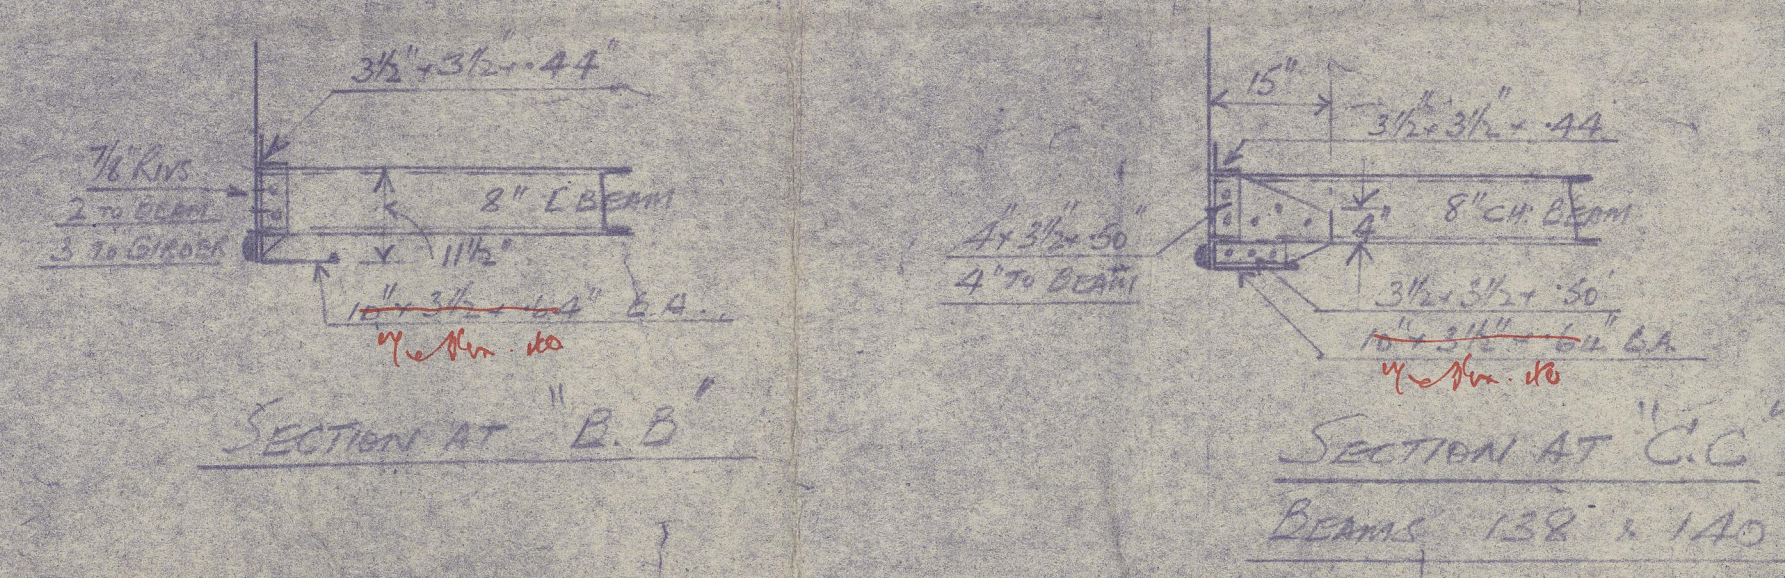 3½" + 3½ + .44"
7/8" RIVS
2 TO BEAM
3 TO GIRDER
8" [ BEAM
11½"
10" + 3½ + .64" B.A.
SECTION AT "B.B"
15"
3½" + 3½" + .44
4" + 3½" + .50"
4" TO BEAM
4"
8" CH. BEAM
3½ + 3½ + .50
10" + 3½" + .64" B.A.
SECTION AT "C.C"
BEAMS 138 & 140